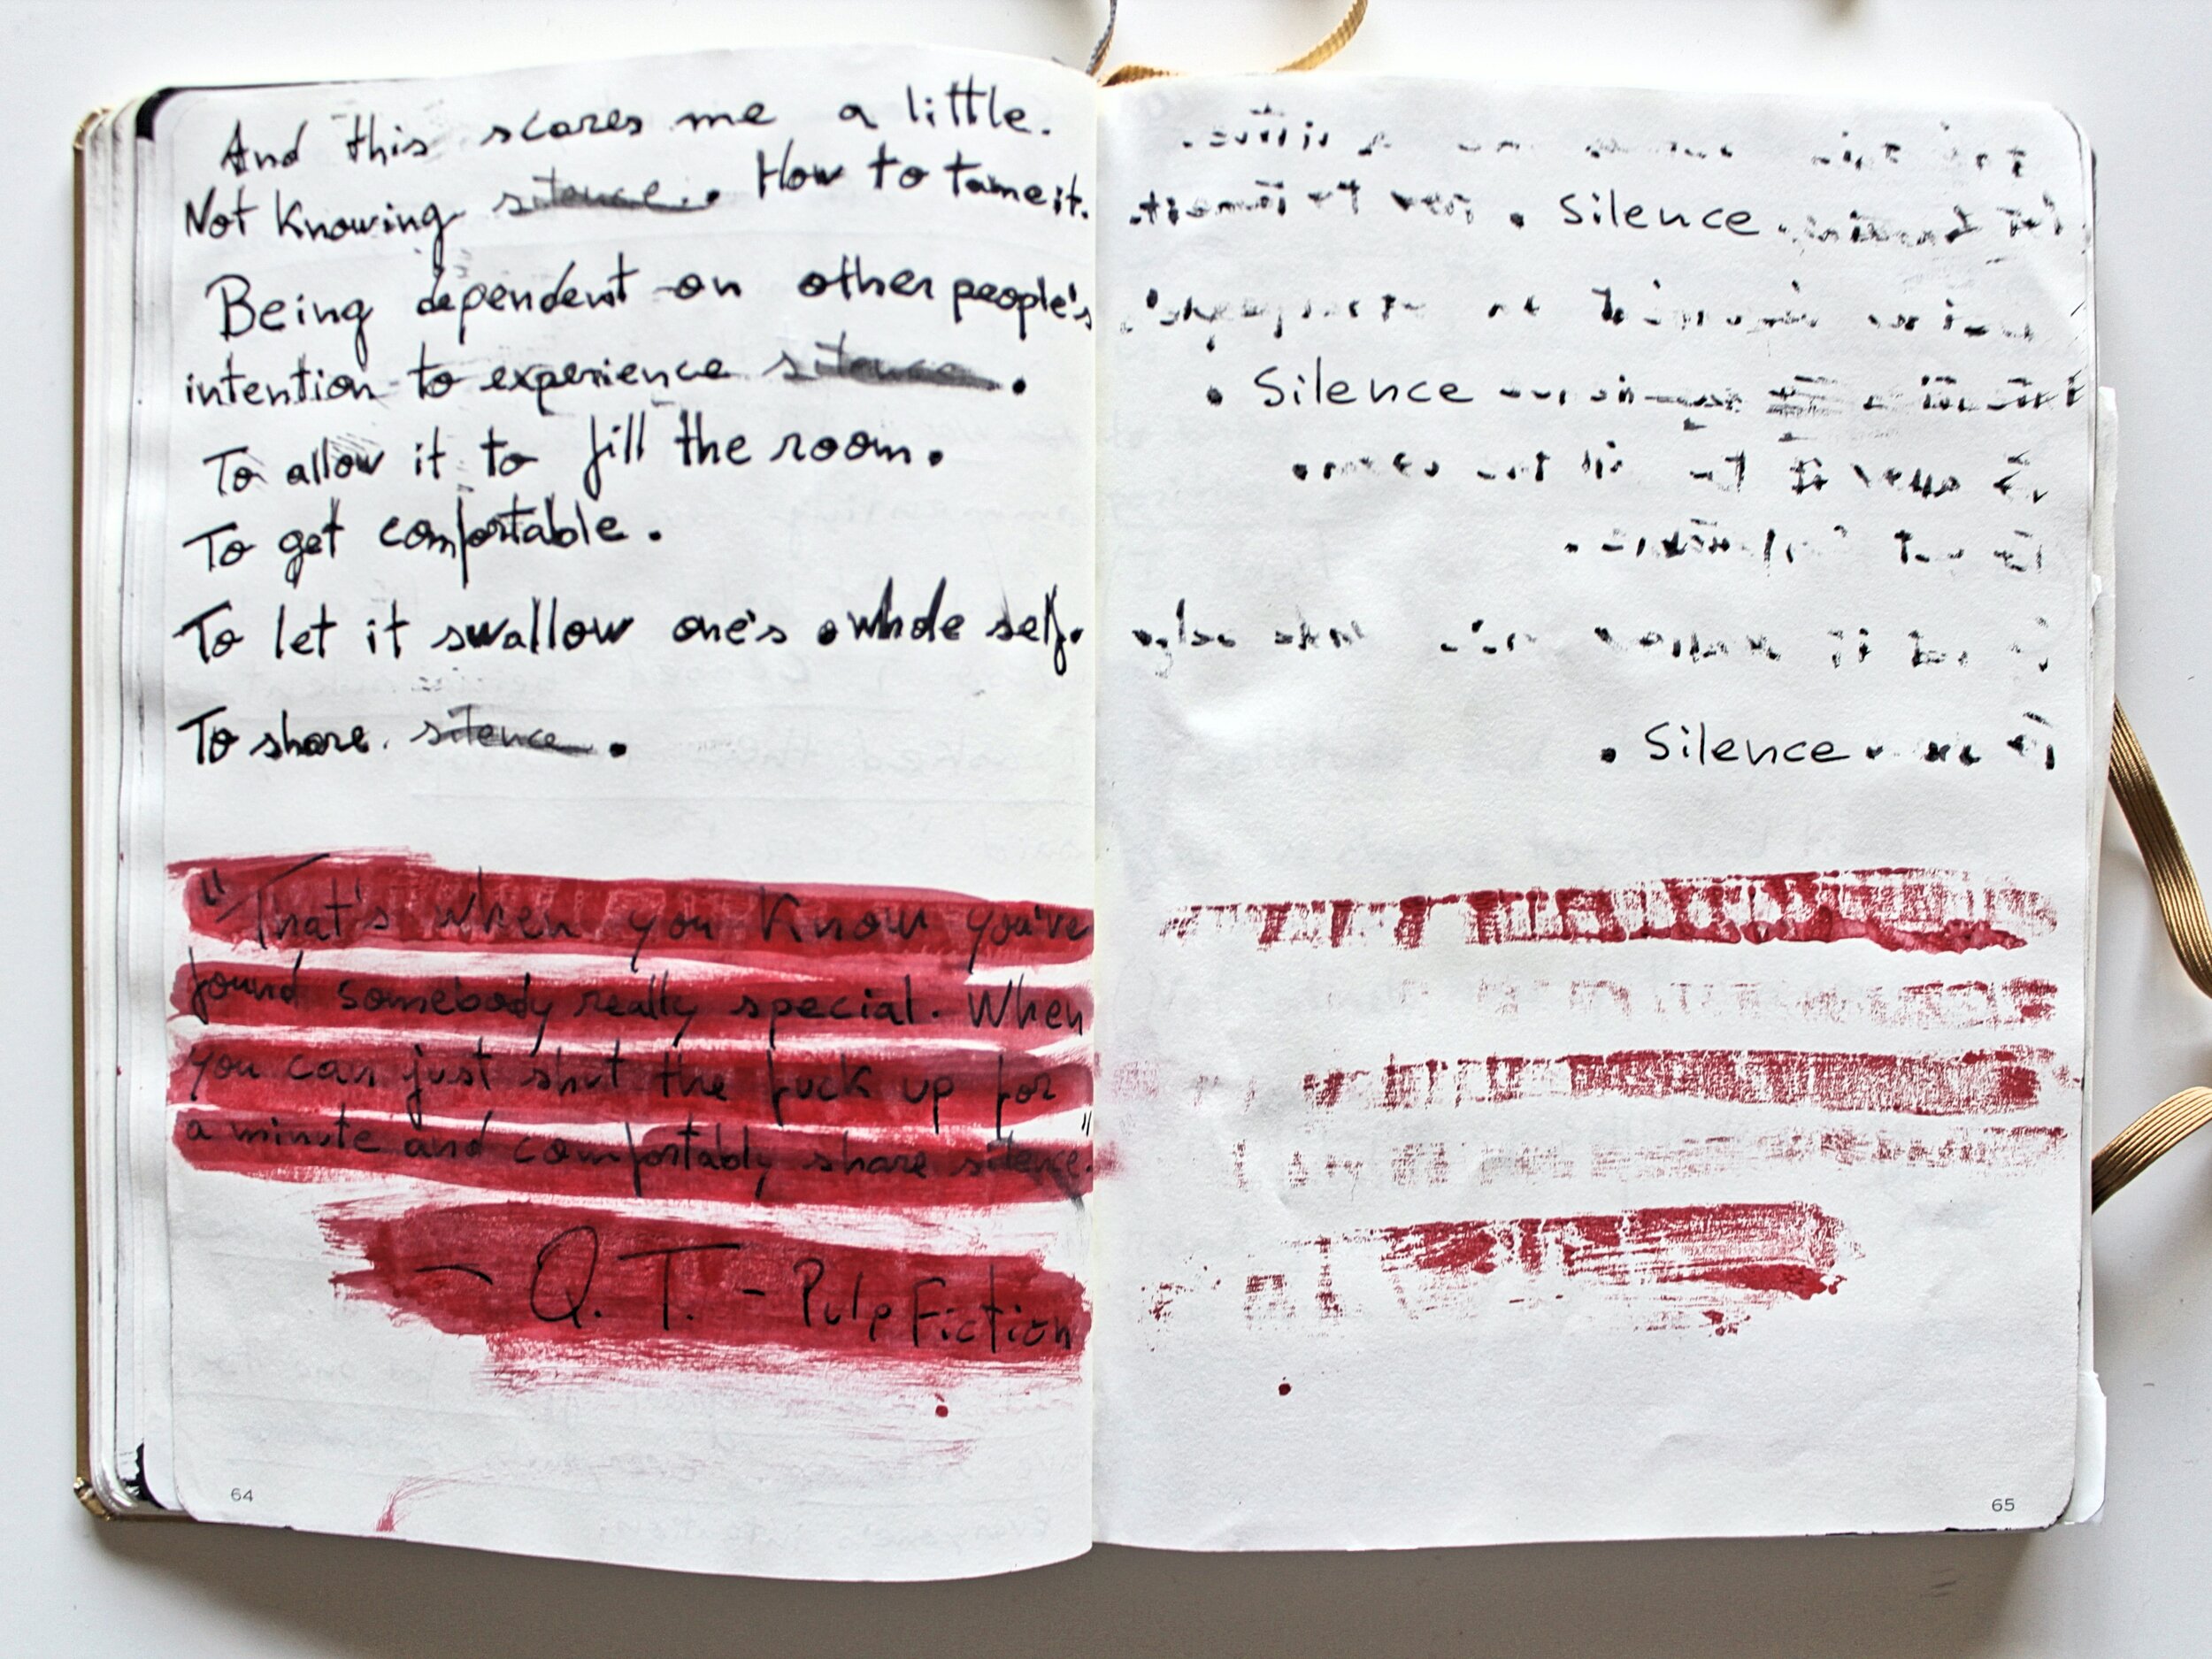 And this scares me a little.
Not Knowing silence. How to tame it.
Being dependent on other people's
intention to experience silence.
To allow it to fill the room.
To get comfortable.
To let it swallow one's whole self.
To share silence.
"That's when you know you've
found somebody really special. When
you can just shut the fuck up for
a minute and comfortably share silence."
– Q.T. - Pulp Fiction
64
Silence
Silence
Silence
65